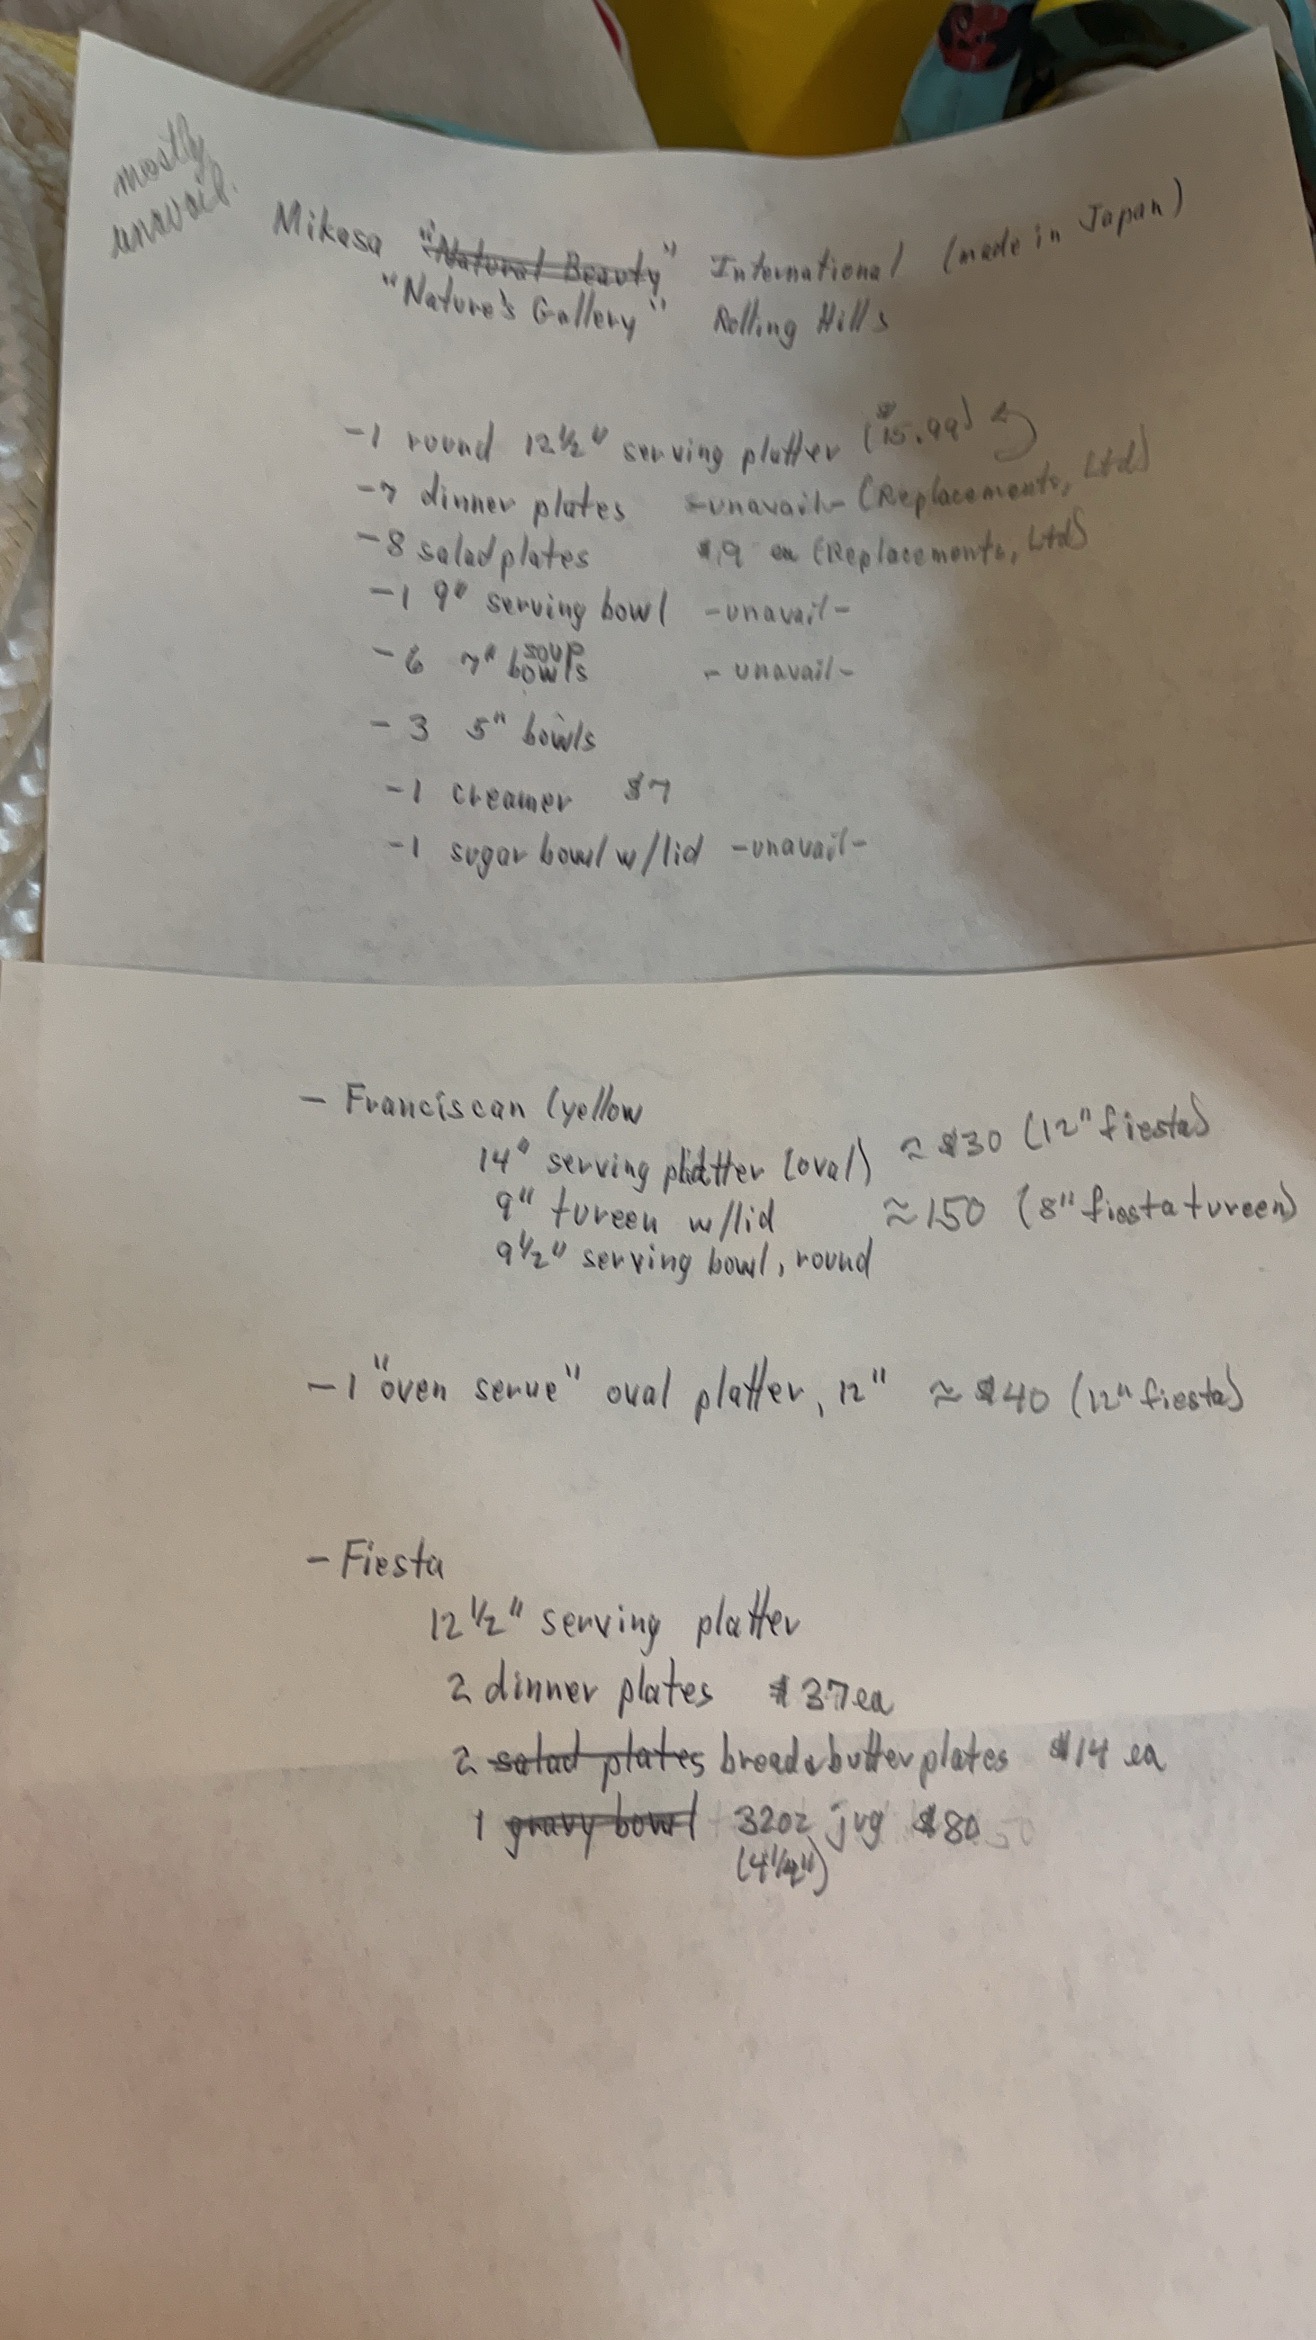 mostly
unavail.
Mikasa "Natural Beauty" International (made in Japan)
"Nature's Gallery" Rolling Hills
-1 round 12½" serving platter ($15.99)
-7 dinner plates -unavail- (Replacements, Ltd)
-8 salad plates $9 ea (Replacements, Ltd)
-1 9" serving bowl -unavail-
-6 7" soup bowls -unavail-
-3 5" bowls
-1 creamer $7
-1 sugar bowl w/lid -unavail-
- Franciscan (yellow
14" serving platter (oval) ≈ $30 (12" fiesta)
9" tureen w/lid ≈150 (8" fiesta tureen)
9½" serving bowl, round
-1 "oven serve" oval platter, 12" ≈ $40 (12" fiesta)
- Fiesta
12½" serving platter
2 dinner plates $37 ea
2 salad plates bread&butter plates $14 ea
1 gravy bowl 32oz jug $80